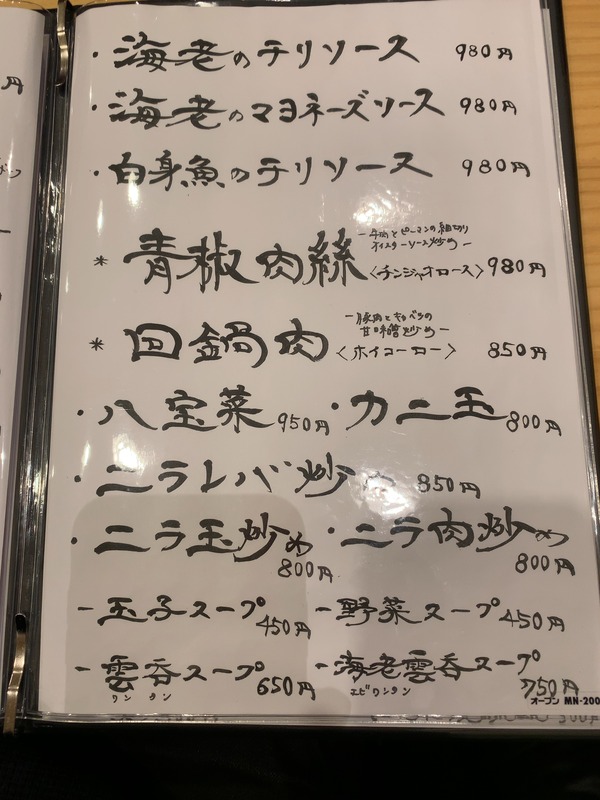 ・海老のチリソース 980円
・海老のマヨネーズソース 980円
・白身魚のチリソース 980円
－牛肉とピーマンの細切り
オイスターソース炒め－
＊青椒肉絲〈チンジャオロース〉980円
－豚肉とキャベツの
甘味噌炒め－
＊回鍋肉〈ホイコーロー〉 850円
・八宝菜 950円 ・カニ玉 800円
・ニラレバ炒め 850円
・ニラ玉炒め 800円 ・ニラ肉炒め 800円
－玉子スープ 450円 －野菜スープ 450円
－雲呑スープ 650円 －海老雲呑スープ 750円
ワンタン エビワンタン
オープン MN-200
円